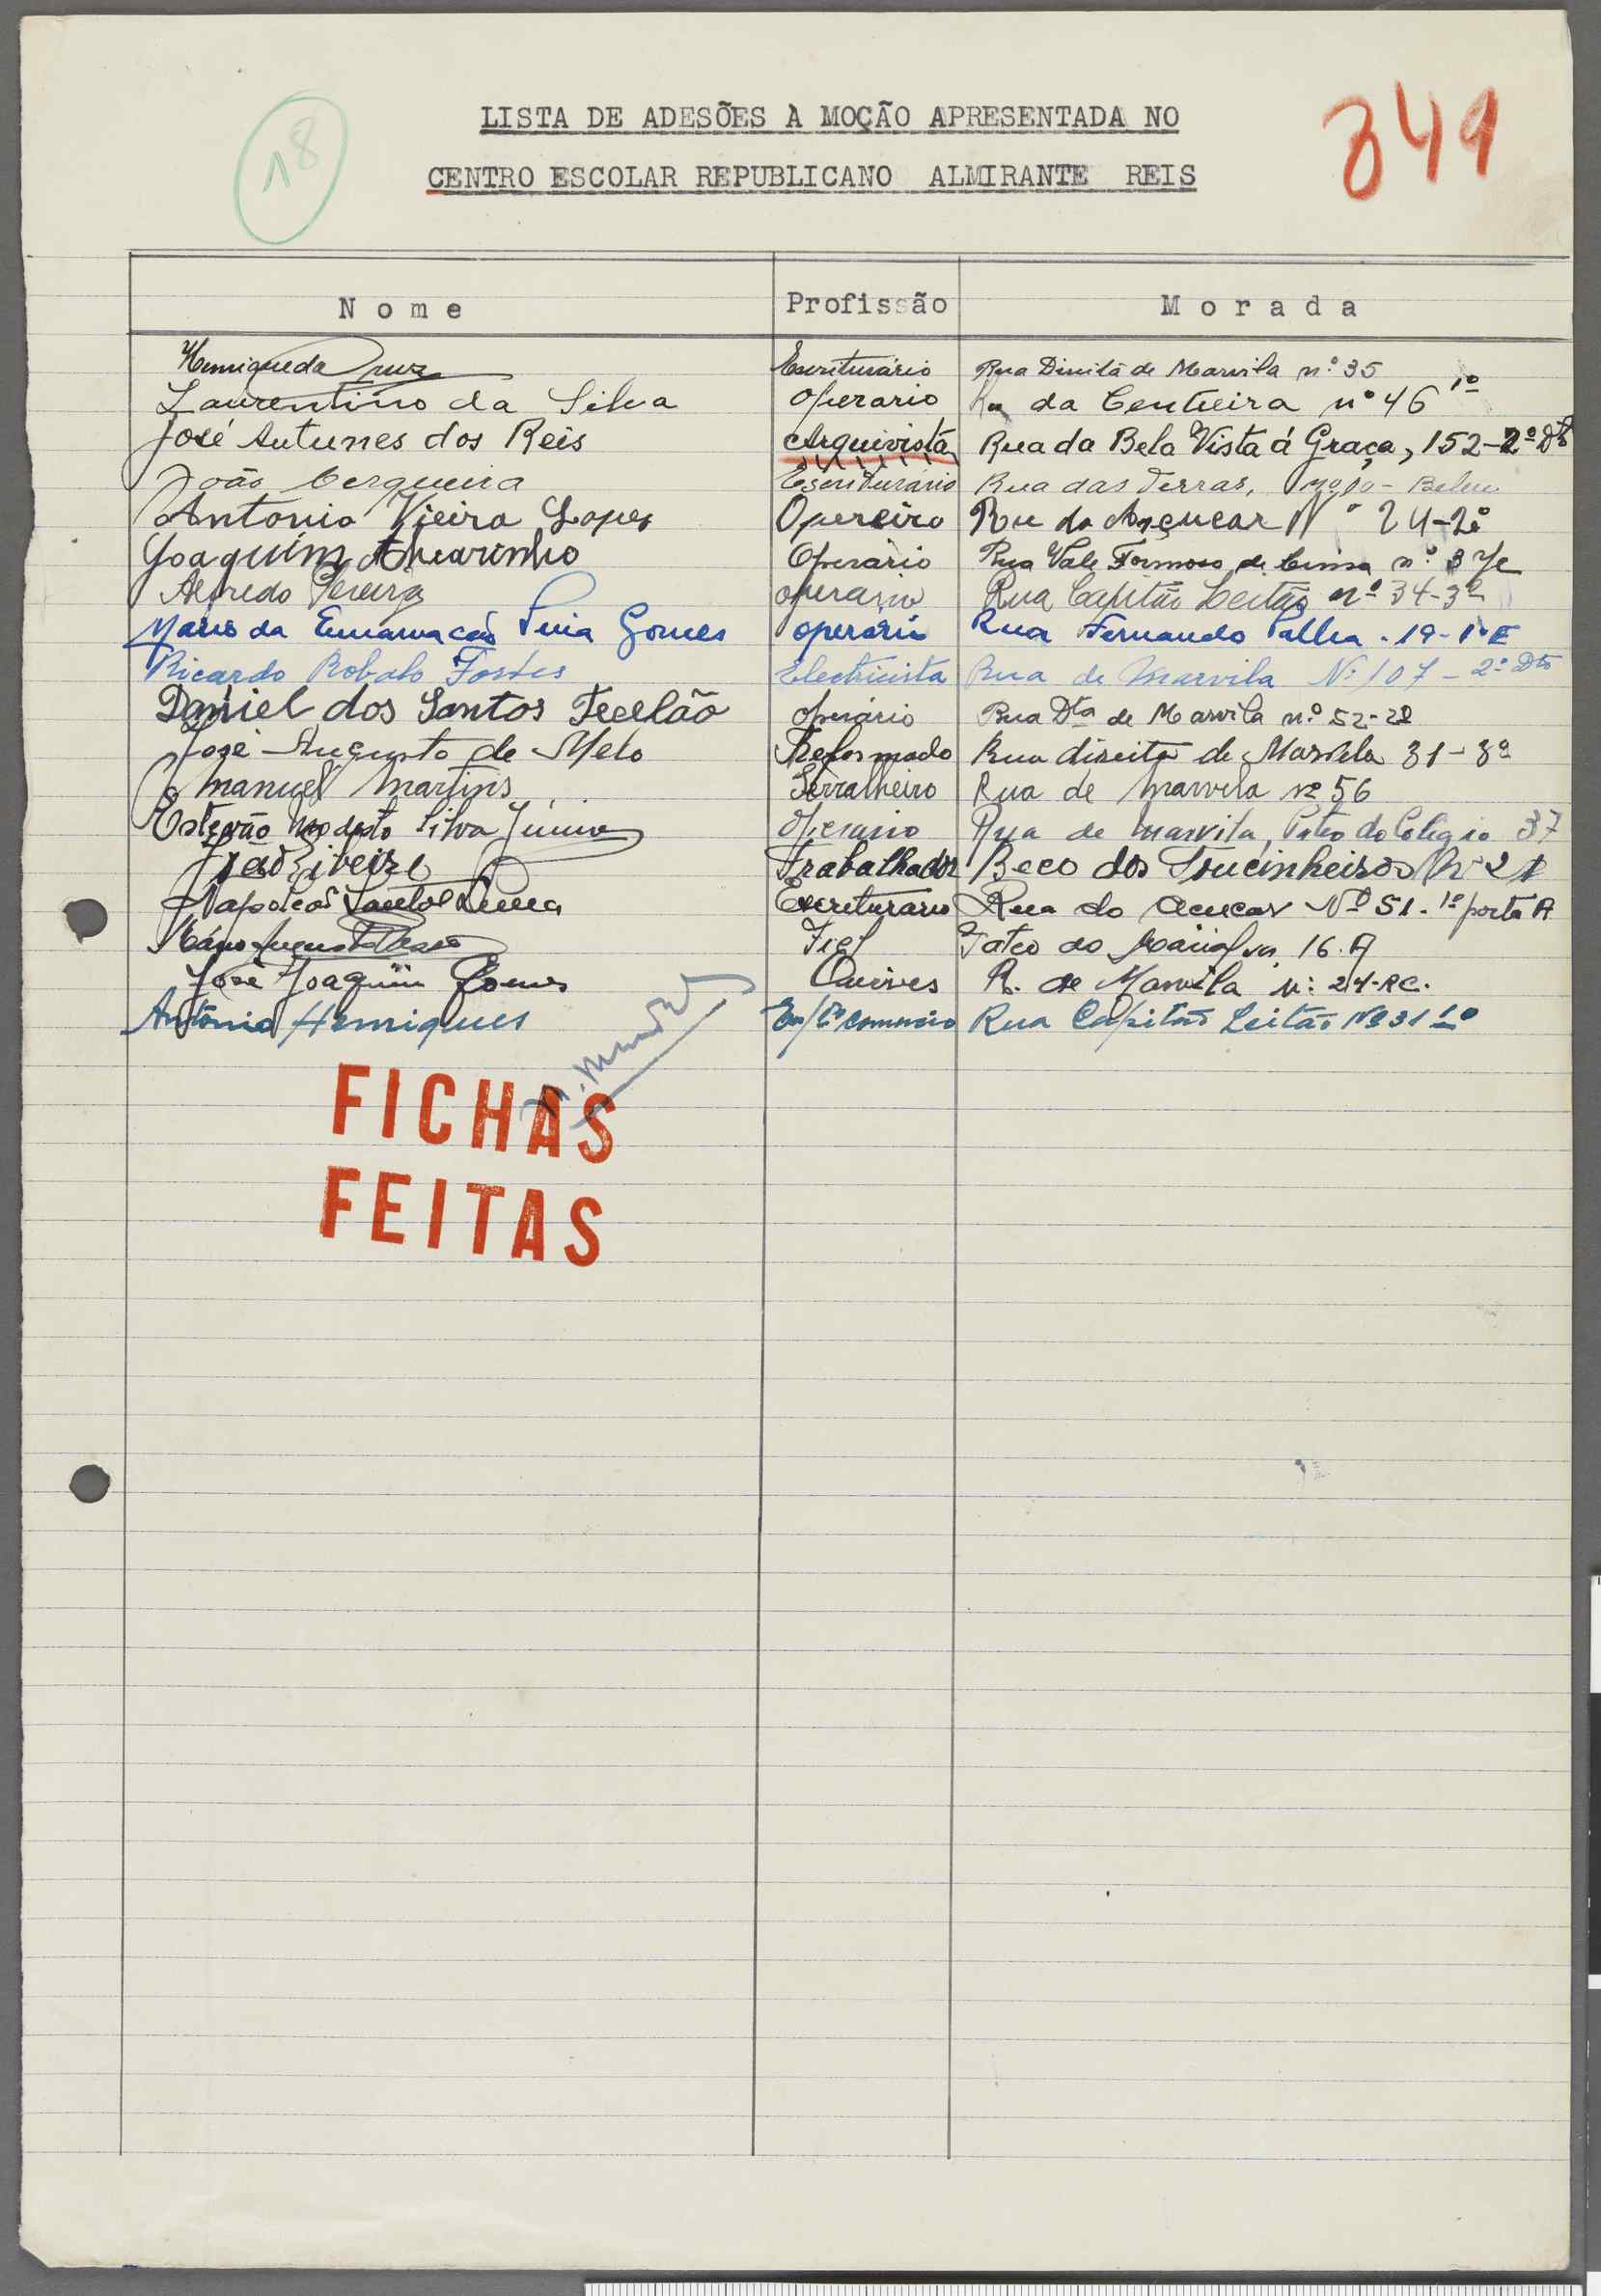 18
349
LISTA DE ADESÕES A MOÇÃO APRESENTADA NO
CENTRO ESCOLAR REPUBLICANO ALMIRANTE REIS
Nome Profissão Morada
Henrique da Cruz Escriturário Rua Direita de Marvila nº 35
Laurentino da Silva Operario Rua da Centieira nº 46 1º
José Antunes dos Reis Arquivista Rua da Bela Vista á Graça, 152-2º Dtº
João Cerqueira Escriturario Rua das Terras, Belem
Antonio Vieira Lopes Opereiro Rue do Asçucar Nº 24-2º
Joaquim Operario Rua Vale Formoso de Cima nº 3
Alfredo Pereira operario Rua Capitão Leitão nº 34-3º
Mario da Encarnação Gomes operário Rua Fernando Palha. 19-1º E
Ricardo Robalo Fortes Electricista Rua de Marvila Nº 107-2º Dto
Daniel dos Santos Tecelão operário Rua Dta de Marvila nº 52-2º
José Augusto de Melo Reformado Rua direita de Marvila 31-3º
Manuel Martins Serralheiro Rua de Marvila nº 56
Estevão Modesto Silva Junior Operario Rua de Marvila, Pateo do Colegio 37
João Ribeiro Trabalhador Beco dos Toucinheiros Nº 21
Napoleão Santos Escriturario Rua do Acucar Nº 51. 1º porta A
Mário Augusto Fiel Pateo do 16. A
José Joaquim Gomes Ourives R. de Marvila nº 24-RC.
António Henriques Empº comercio Rua Capitão Leitão Nº 31 1º
FICHAS
FEITAS